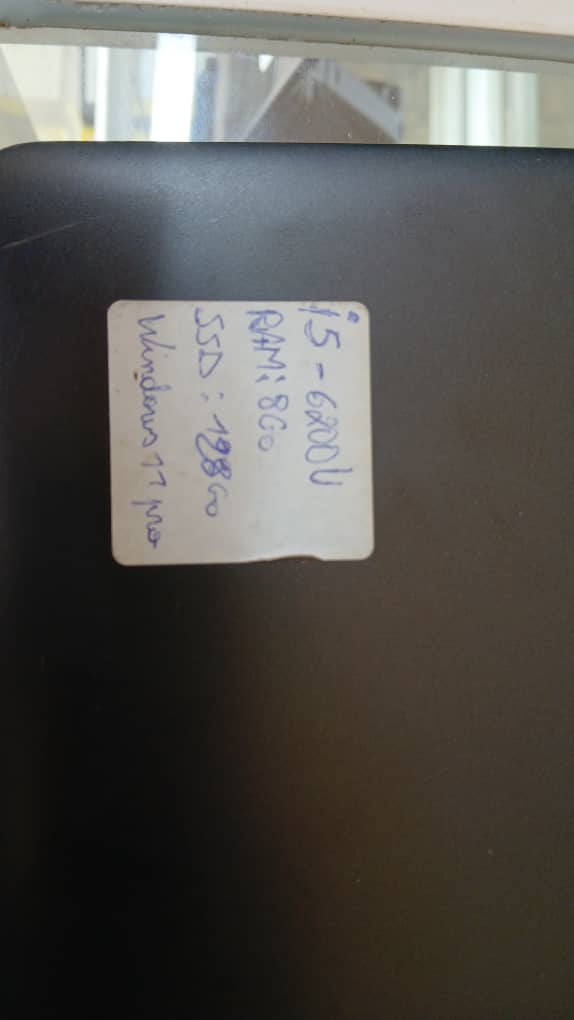 i5-6200U
RAM: 8Go
SSD: 128Go
Windows 11 pro